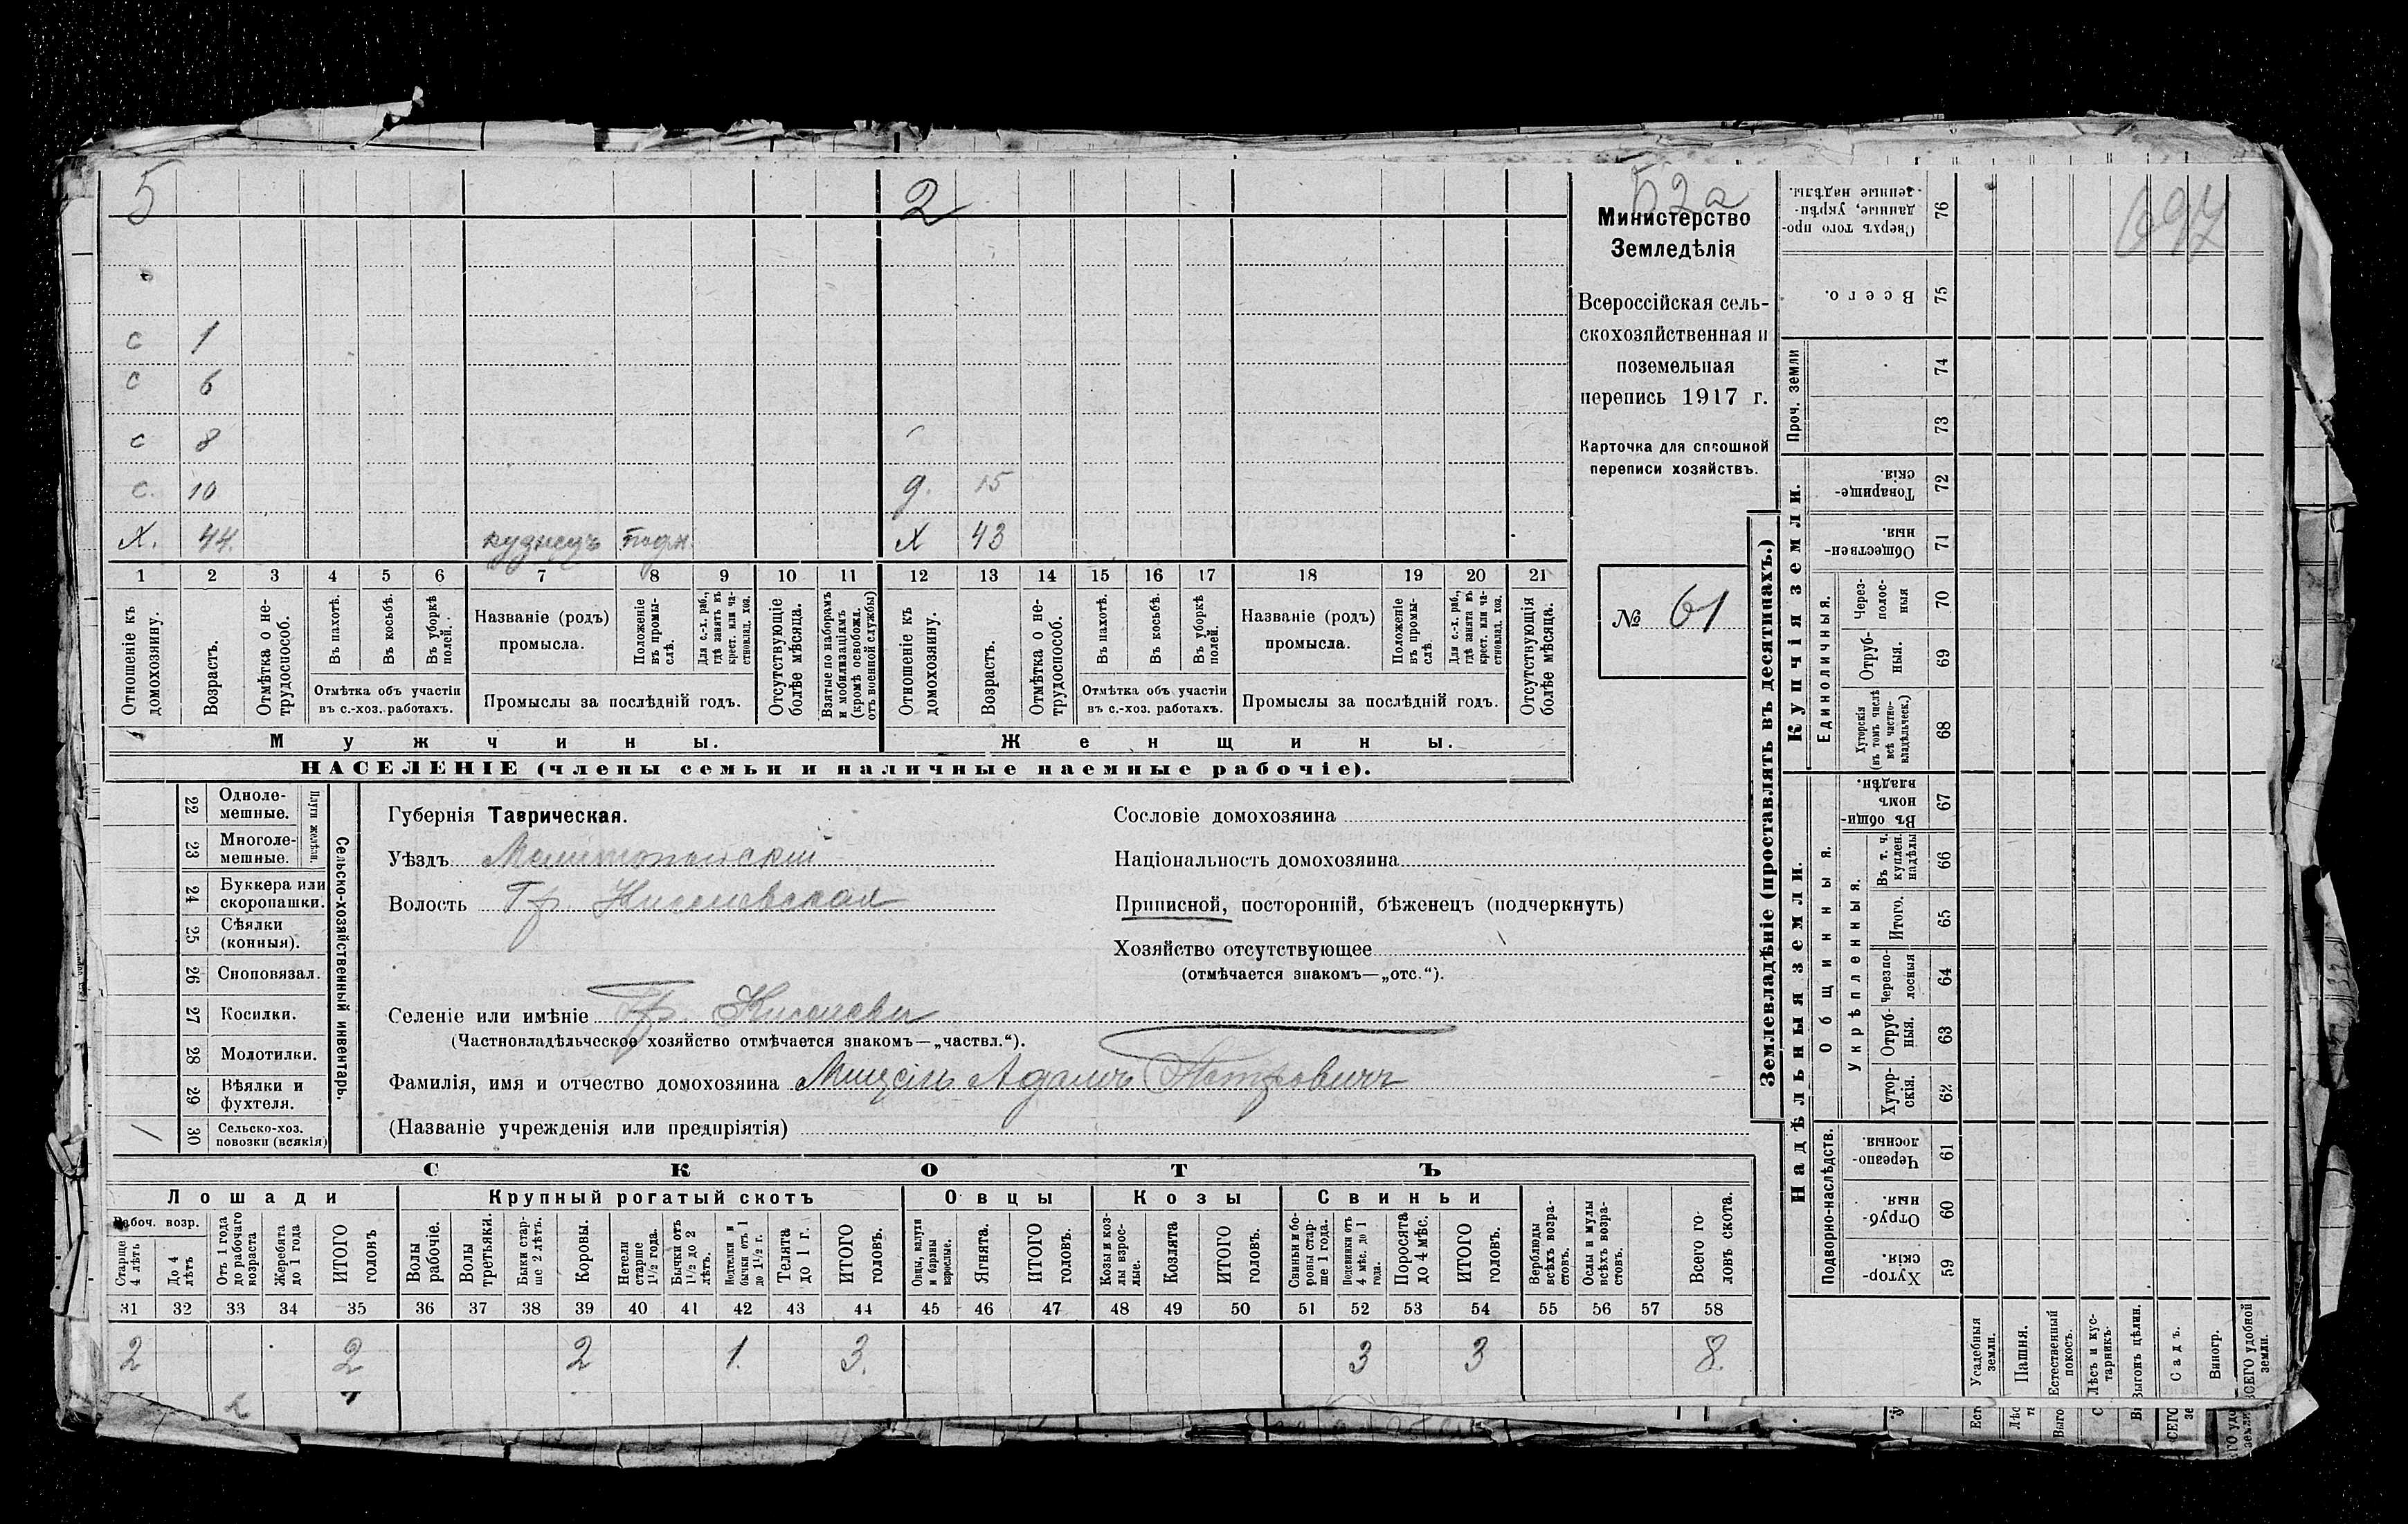 5 2
с 1
с 6
с 8
с. 10 д. 15
Х. 44. кузнецъ Х 43
1 2 3 4 5 6 7 8 9 10 11 12 13 14 15 16 17 18 19 20 21
Отношеніе къ домохозяину.
Возрастъ.
Отмѣтка о нетрудоспособ.
Въ пахотѣ.
Въ косьбѣ.
Въ уборкѣ полей.
Отмѣтка объ участіи
въ с.-хоз. работахъ.
Названіе (родъ)
промысла.
Положеніе въ промыслѣ.
Для с.-х. раб., гдѣ занятъ въ крест. или частновлад. хоз.
Промыслы за послѣдній годъ.
Отсутствующіе болѣе мѣсяца.
Взятые по наборамъ и мобилизаціямъ (кромѣ освобожд. отъ военной службы)
Отношеніе къ домохозяину.
Возрастъ.
Отмѣтка о нетрудоспособ.
Въ пахотѣ.
Въ косьбѣ.
Въ уборкѣ полей.
Отмѣтка объ участіи
въ с.-хоз. работахъ.
Названіе (родъ)
промысла.
Положеніе въ промыслѣ
Для с.-х. раб., гдѣ занята въ крест. или частновлад. хоз.
Промыслы за послѣдній годъ.
Отсутствующія болѣе мѣсяца.
Мужчины. Женщины.
НАСЕЛЕНІЕ (члены семьи и наличные наемные рабочіе).
52а
Министерство
Земледѣлія
Всероссійская сель-
скохозяйственная и
поземельная
перепись 1917 г.
Карточка для сплошной
переписи хозяйствъ.
№ 61
22 Однолемешные.
23 Многолемешные.
Плуги желѣзн.
24 Буккера или скоропашки.
25 Сѣялки (конныя).
26 Сноповязал.
27 Косилки.
28 Молотилки.
29 Вѣялки и фухтеля.
30 Сельско-хоз. повозки (всякія)
Сельско-хозяйственный инвентарь.
Губернія Таврическая.
Уѣздъ Мелитопольскій
Волость
Селеніе или имѣніе
(Частновладѣльческое хозяйство отмѣчается знакомъ—„частвл.“).
Фамилія, имя и отчество домохозяина Адамъ Петровичъ
(Названіе учрежденія или предпріятія)
Сословіе домохозяина
Національность домохозяина
Приписной, посторонній, бѣженецъ (подчеркнуть)
Хозяйство отсутствующее
(отмѣчается знакомъ—„отс.“).
СКОТЪ
Лошади Крупный рогатый скотъ Овцы Козы Свиньи
Рабоч. возр.
Старше 4 лѣтъ
До 4 лѣтъ
Отъ 1 года до рабочаго возраста
Жеребята до 1 года
ИТОГО головъ
Волы рабочіе.
Волы третьяки.
Быки старше 2 лѣтъ.
Коровы.
Нетели старше 1½ года.
Бычки отъ 1½ до 2 лѣтъ.
Подтелки и бычки отъ 1 до 1½ г.
Телята до 1 г.
ИТОГО головъ.
Овцы, валухи и бараны взрослые.
Ягнята.
ИТОГО головъ.
Козы и козлы взрослые.
Козлята
ИТОГО головъ.
Свиньи и боровы старше 1 года.
Подсвинки отъ 4 мѣс. до 1 года.
Поросята до 4 мѣс.
ИТОГО головъ.
Верблюды всѣхъ возрастовъ.
Ослы и мулы всѣхъ возрастовъ.
Всего головъ скота.
31 32 33 34 35 36 37 38 39 40 41 42 43 44 45 46 47 48 49 50 51 52 53 54 55 56 57 58
2 2 2 1. 3. 3 3 8.
Землевладѣніе (проставлять въ десятинахъ.)
Купчія земли.
Надѣльныя земли.
697
76 Сверхъ того проданные, укрѣпленные надѣлы.
75 Всего.
74
73
Проч. земли
72 Товарищескія.
71 Общественныя.
70 Черезполосныя
69 Отрубныя.
68 Хуторскія (въ томъ числѣ всѣ частновладѣльческ.)
Единоличныя.
67 Въ общинномъ владѣн.
66 Въ т. ч. куплен. надѣлы
65 Итого.
64 Черезполосныя
63 Отрубныя.
62 Хуторскія.
Укрѣпленныя.
Общинныя.
61 Черезполосныя.
60 Отрубныя.
59 Хуторскія.
Подворно-наслѣдств.
Усадебныя земли.
Пашня.
Естественный покосъ.
Лѣсъ и кустарникъ.
Выгонъ цѣлин.
Садъ.
Виногр.
ВСЕГО удобной земли.